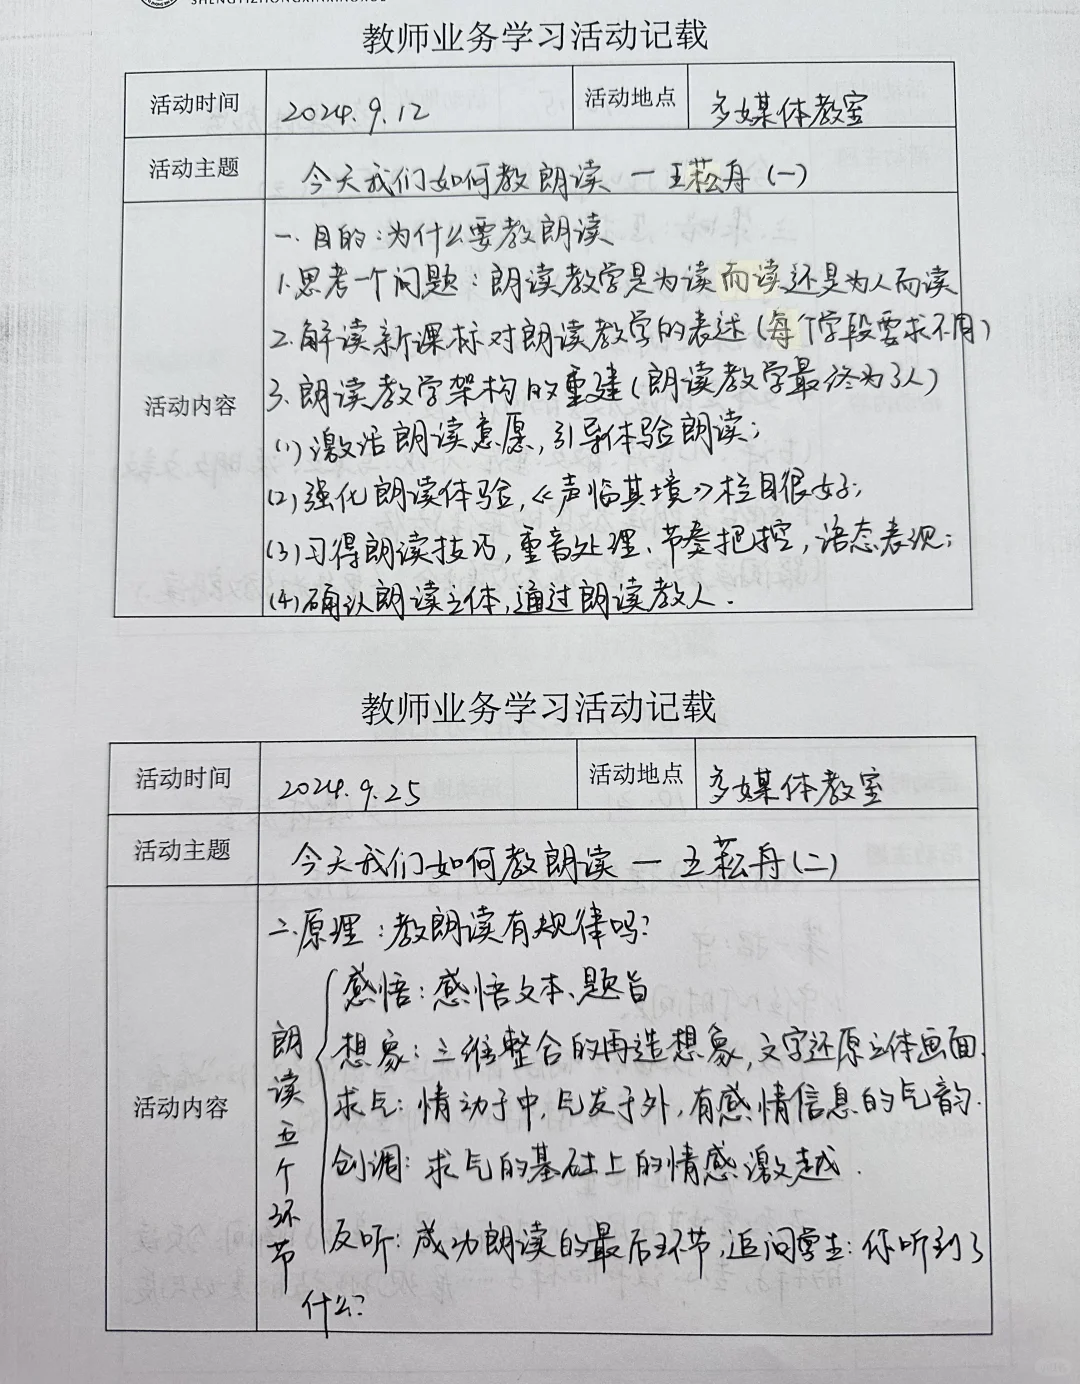 教师业务学习活动记载
活动时间 2024.9.12 活动地点 多媒体教室
活动主题 今天我们如何教朗读 — 王菘舟(一)
活动内容
一.目的:为什么要教朗读
1.思考一个问题:朗读教学是为读而读还是为人而读
2.解读新课标对朗读教学的表述(每个学段要求不同)
3.朗读教学架构的重建(朗读教学最终为了人)
(1)激活朗读意愿,引导体验朗读;
(2)强化朗读体验,《声临其境》栏目很好;
(3)习得朗读技巧,重音处理、节奏把控,语态表现;
(4)确认朗读主体,通过朗读教人.
教师业务学习活动记载
活动时间 2024.9.25 活动地点 多媒体教室
活动主题 今天我们如何教朗读 — 王菘舟(二)
活动内容
二.原理:教朗读有规律吗?
朗读五个环节
感悟:感悟文本、题旨
想象:三维整合的再造想象,文字还原立体画面.
求气:情动于中,气发于外,有感情信息的气韵.
创调:求气的基础上的情感激越.
反听:成功朗读的最后环节,追问学生:你听到了
什么?